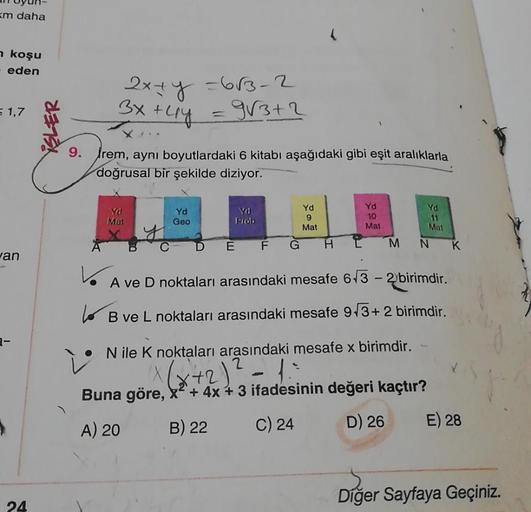 km daha
koşu
eden
1,7
2x+y = 6√3-2
3x+4y = 9√3+2
x...
İŞLER
9. İrem, aynı boyutlardaki 6 kitabı aşağıdaki gibi eşit aralıklarla
doğrusal bir şekilde diziyor.
Yd Mat
Yd Geo
Yd Prob
Yd 9 Mat
Yd 10 Mat
Yd 11 Mat
x y
A B C D E F G H L M N K
• A ve D noktaları arasındaki mesafe 6√3 – 2 birimdir.
• B ve L noktaları arasındaki mesafe 9√3+ 2 birimdir.
• N ile K noktaları arasındaki mesafe x birimdir.
(x+2)² - 1
Buna göre, x² + 4x + 3 ifadesinin değeri kaçtır?
A) 20 B) 22 C) 24 D) 26 E) 28
Diğer Sayfaya Geçiniz.
24